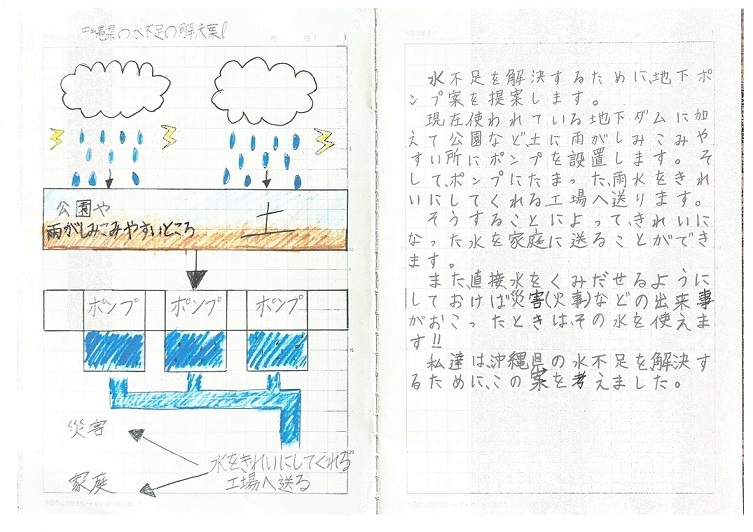 沖縄県の水不足の解決案!
公園や
雨がしみこみやすいところ
土
ポンプ
ポンプ
ポンプ
災害
水をきれいにしてくれる
工場へ送る
家庭
水不足を解決するために、地下ポ
ンプ案を提案します。
現在使われている地下ダムに加
えて公園など、土に雨がしみこみや
すい所にポンプを設置します。そ
して、ポンプにたまった、雨水をきれ
いにしてくれる、工場へ送ります。
そうすることによって、きれいに
なった水を家庭に送ることができ
ます。
また、直接水をくみだせるように
しておけば災害(火事)などの出来事
がおこったときは、その水を使えま
す!!
私達は、沖縄県の水不足を解決す
るために、この案を考えました。